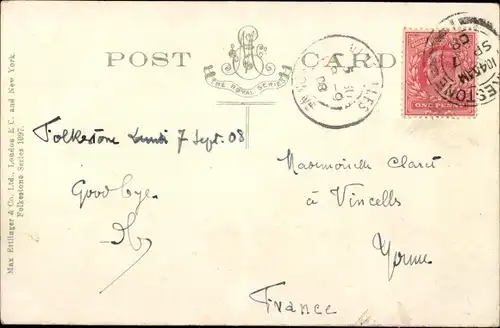 POST CARD
THE ROYAL SERIES
Max Ettlinger & Co. Ltd., London E.C. and New York.
Folkestone Series 1097.
ONE PENNY
KESTONE
10.45AM
SP 7
08
Folkestone Lundi 7 Sept. 08
Good bye.
Mademoiselle Claret
à Vincells
Yonne
France